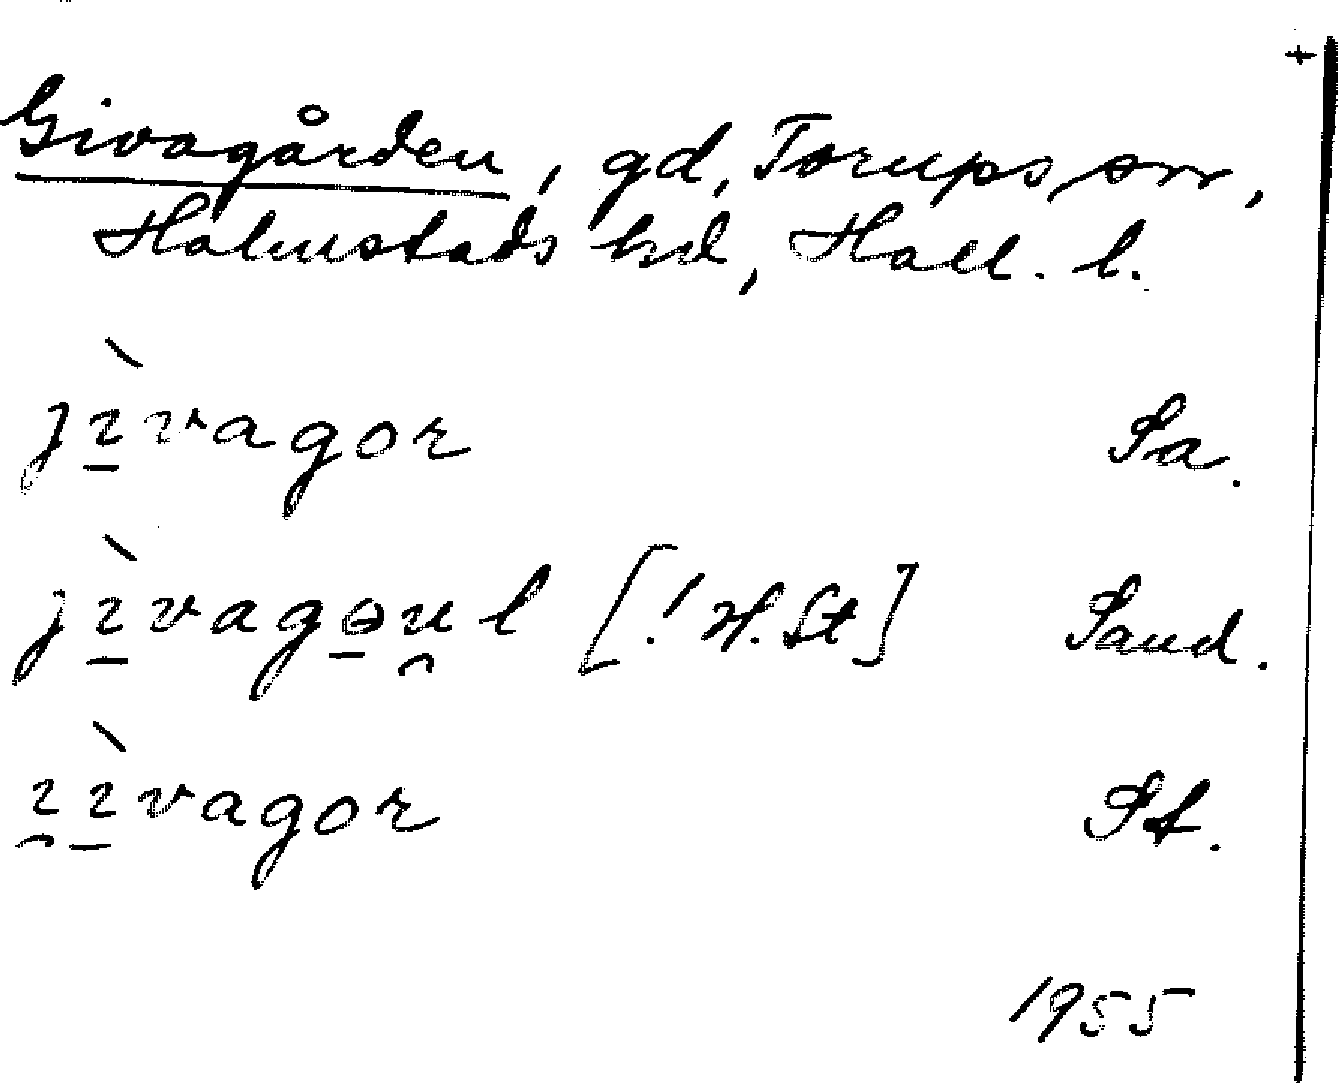 Givagården, gd, Torups sn,
Halmstads hd, Hall. l.
jı̠̀vagor Sa.
jı̠̀vagɵ̠u̯l [! H. St] Sand.
ı̯ı̠̀vagor St.
1955